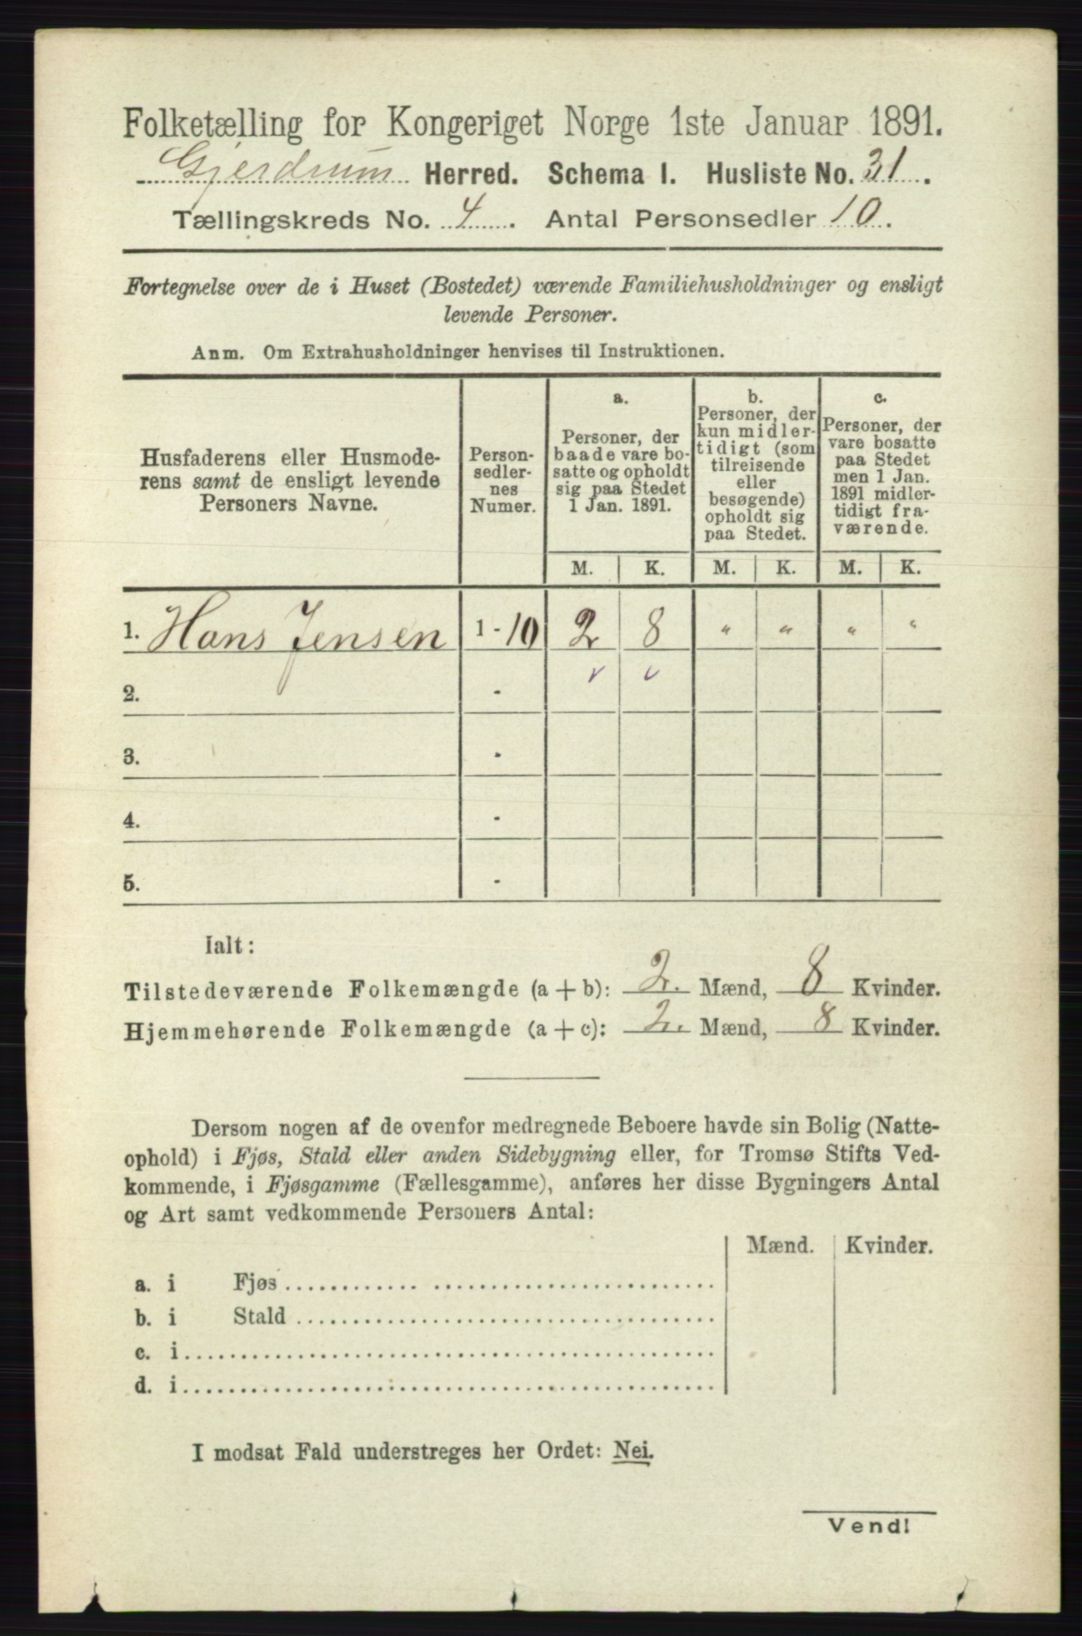 Folketælling for Kongeriget Norge 1ste Januar 1891.
Gjerdrum Herred. Schema I. Husliste No. 31.
Tællingskreds No. 4. Antal Personsedler 10.
Fortegnelse over de i Huset (Bostedet) værende Familiehusholdninger og ensligt
levende Personer.
Anm. Om Extrahusholdninger henvises til Instruktionen.
Husfaderens eller Husmode-
rens samt de ensligt levende
Personers Navne.
Person-
sedler-
nes
Numer.
a.
Personer, der
baade vare bo-
satte og opholdt
sig paa Stedet
1 Jan. 1891.
b.
Personer, der
kun midler-
tidigt (som
tilreisende
eller
besøgende)
opholdt sig
paa Stedet.
c.
Personer, der
vare bosatte
paa Stedet
men 1 Jan.
1891 midler-
tidigt fra-
værende.
M. K. M. K. M. K.
1. Hans Jensen 1 - 10 2 8 " " " "
2. -
3. -
4. -
5. -
Ialt:
Tilstedeværende Folkemængde (a + b): 2. Mænd, 8 Kvinder.
Hjemmehørende Folkemængde (a + c): 2. Mænd, 8 Kvinder.
Dersom nogen af de ovenfor medregnede Beboere havde sin Bolig (Natte-
ophold) i Fjøs, Stald eller anden Sidebygning eller, for Tromsø Stifts Ved-
kommende, i Fjøsgamme (Fællesgamme), anføres her disse Bygningers Antal
og Art samt vedkommende Personers Antal:
Mænd. Kvinder.
a. i Fjøs
b. i Stald
c. i
d. i
I modsat Fald understreges her Ordet: Nei.
Vend!